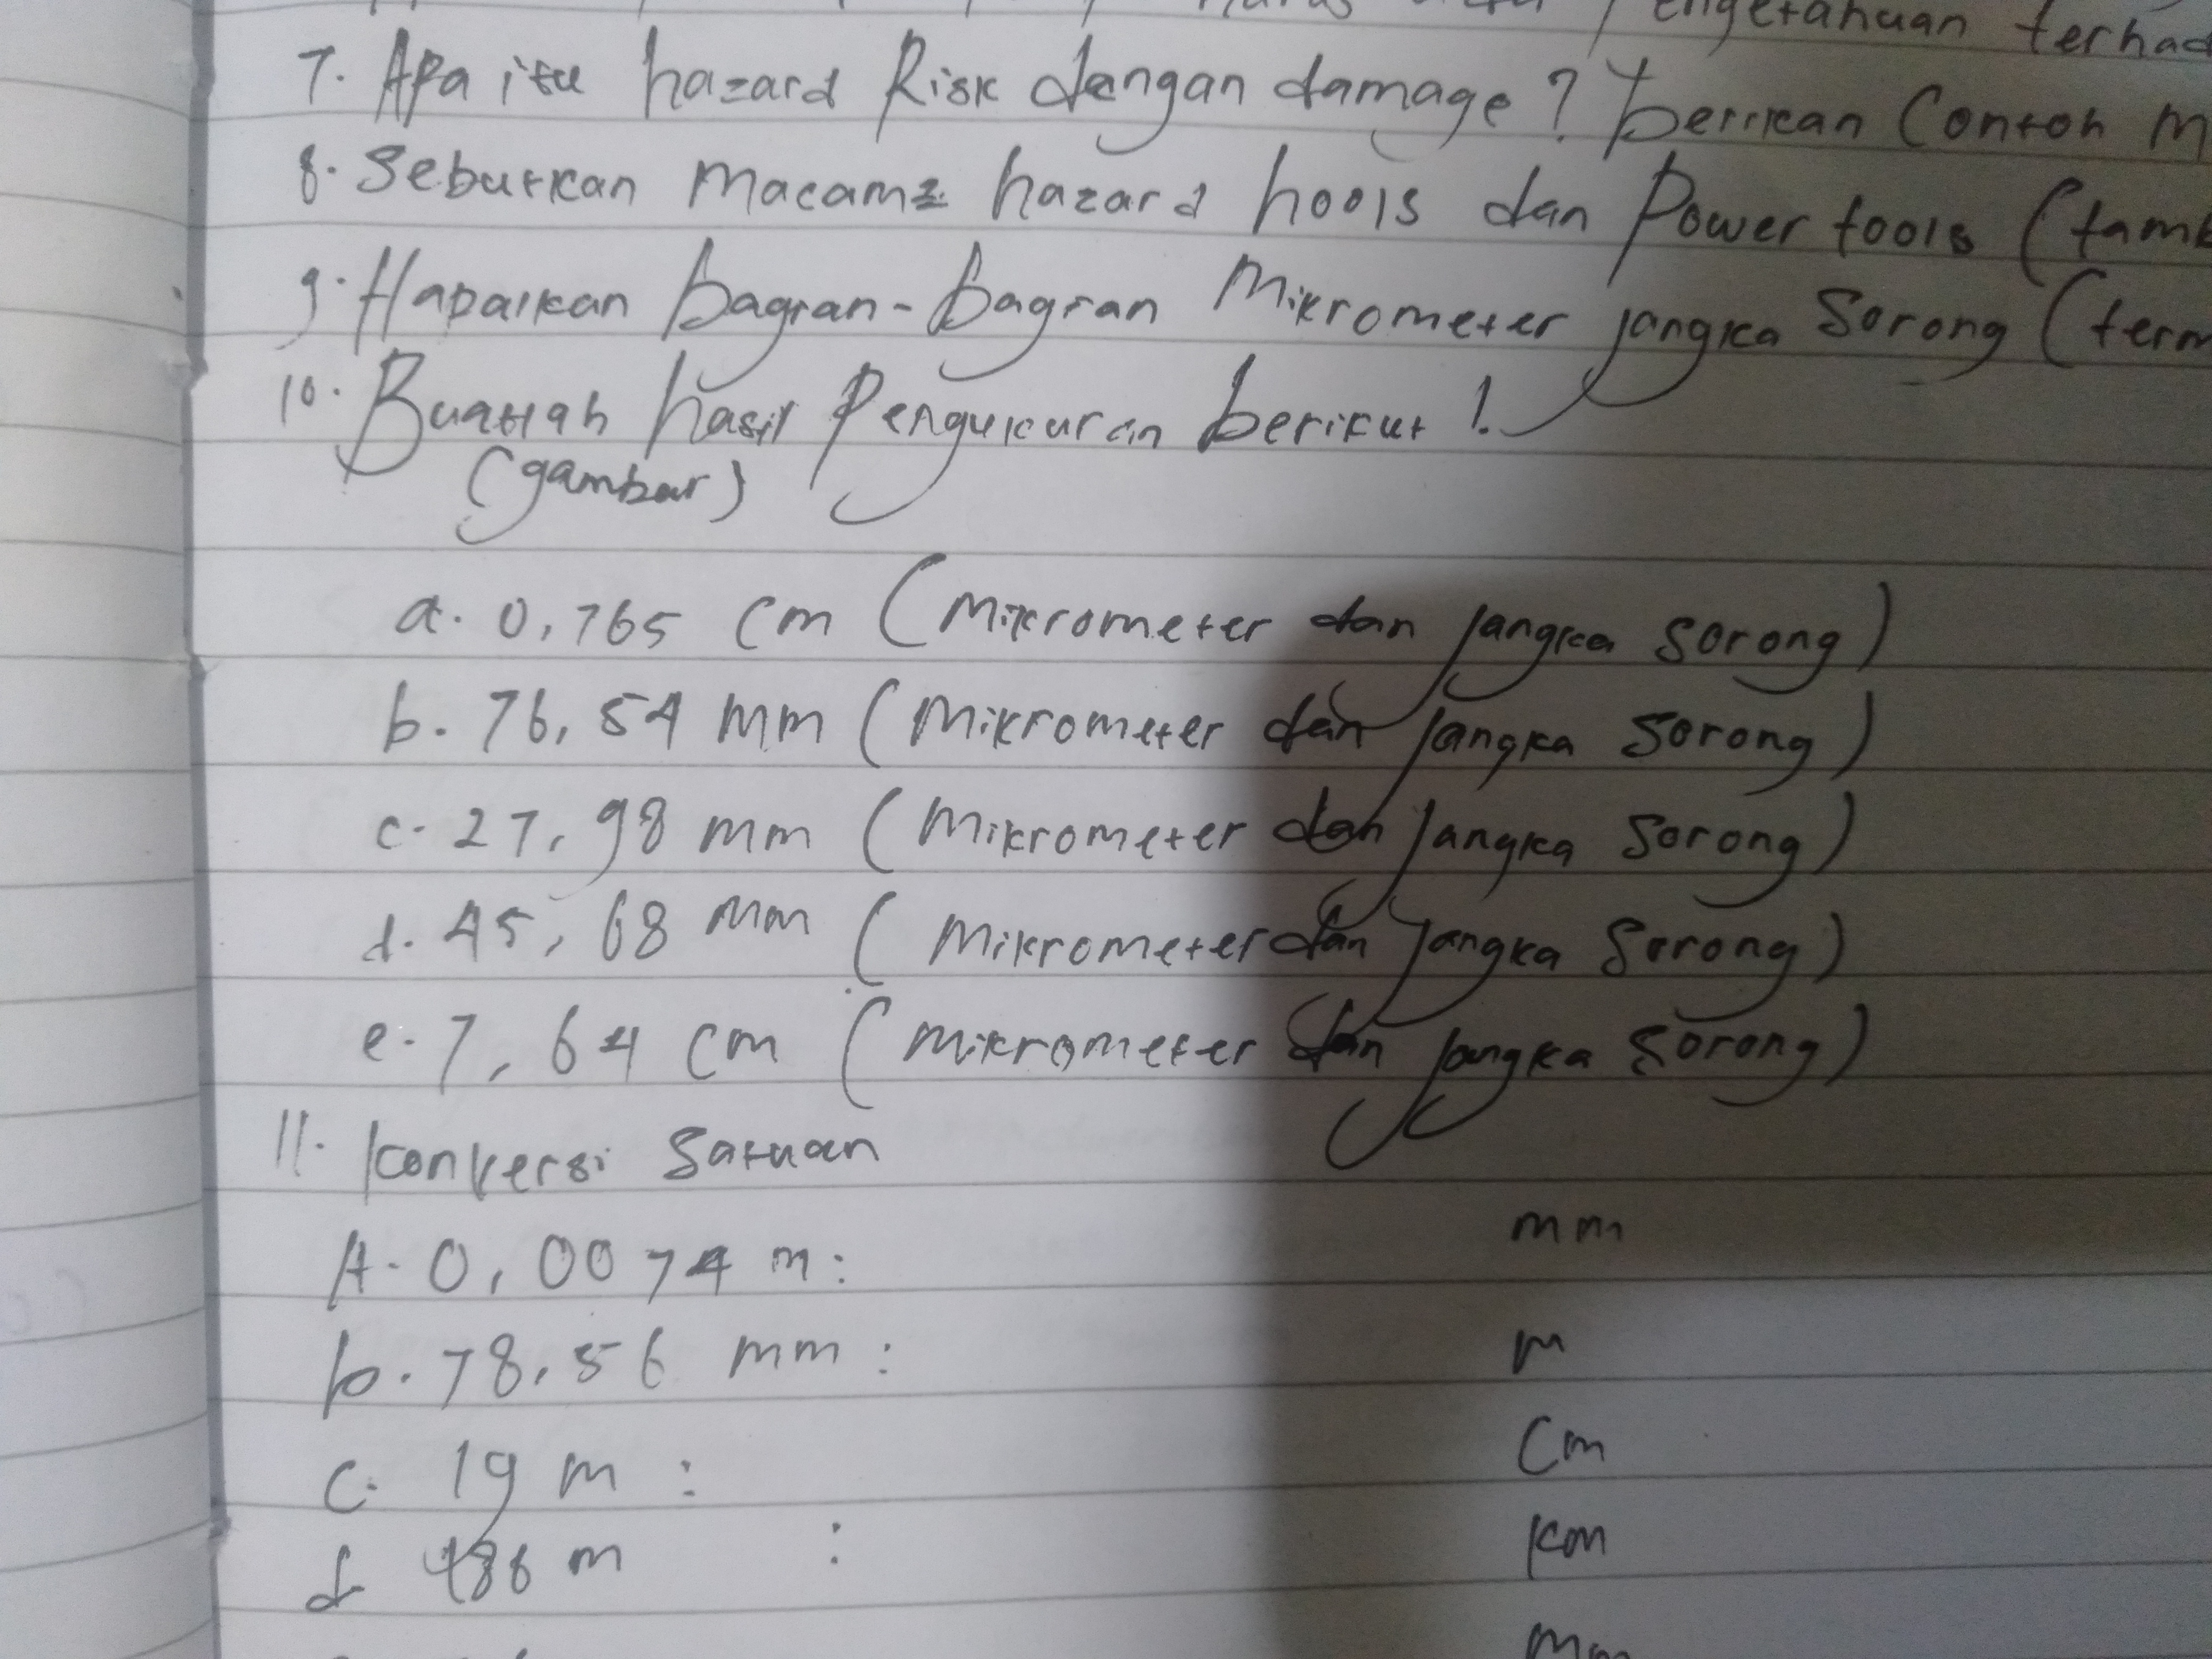 engetahuan terhad
7. Apa itu hazard Risk dengan damage? berikan Contoh m
8. Sebutkan macam2 hazard hools dan Power tools (tamb
9. Hapalkan bagian-bagian Mikrometer jangka Sorong (term
10. Buatlah hasil Pengukuran berikut!
(gambar)
a. 0,765 cm (Mikrometer dan jangka sorong)
b. 76,54 mm (Mikrometer dan jangka sorong)
c. 27,98 mm (Mikrometer dan jangka sorong)
d. 45,68 mm (Mikrometer dan jangka sorong)
e. 7,64 cm (Mikrometer dan jangka sorong)
11. Konversi Satuan
A. 0,0074 m: mm
b. 78,56 mm: m
c. 19 m: cm
d 486 m : km
mm